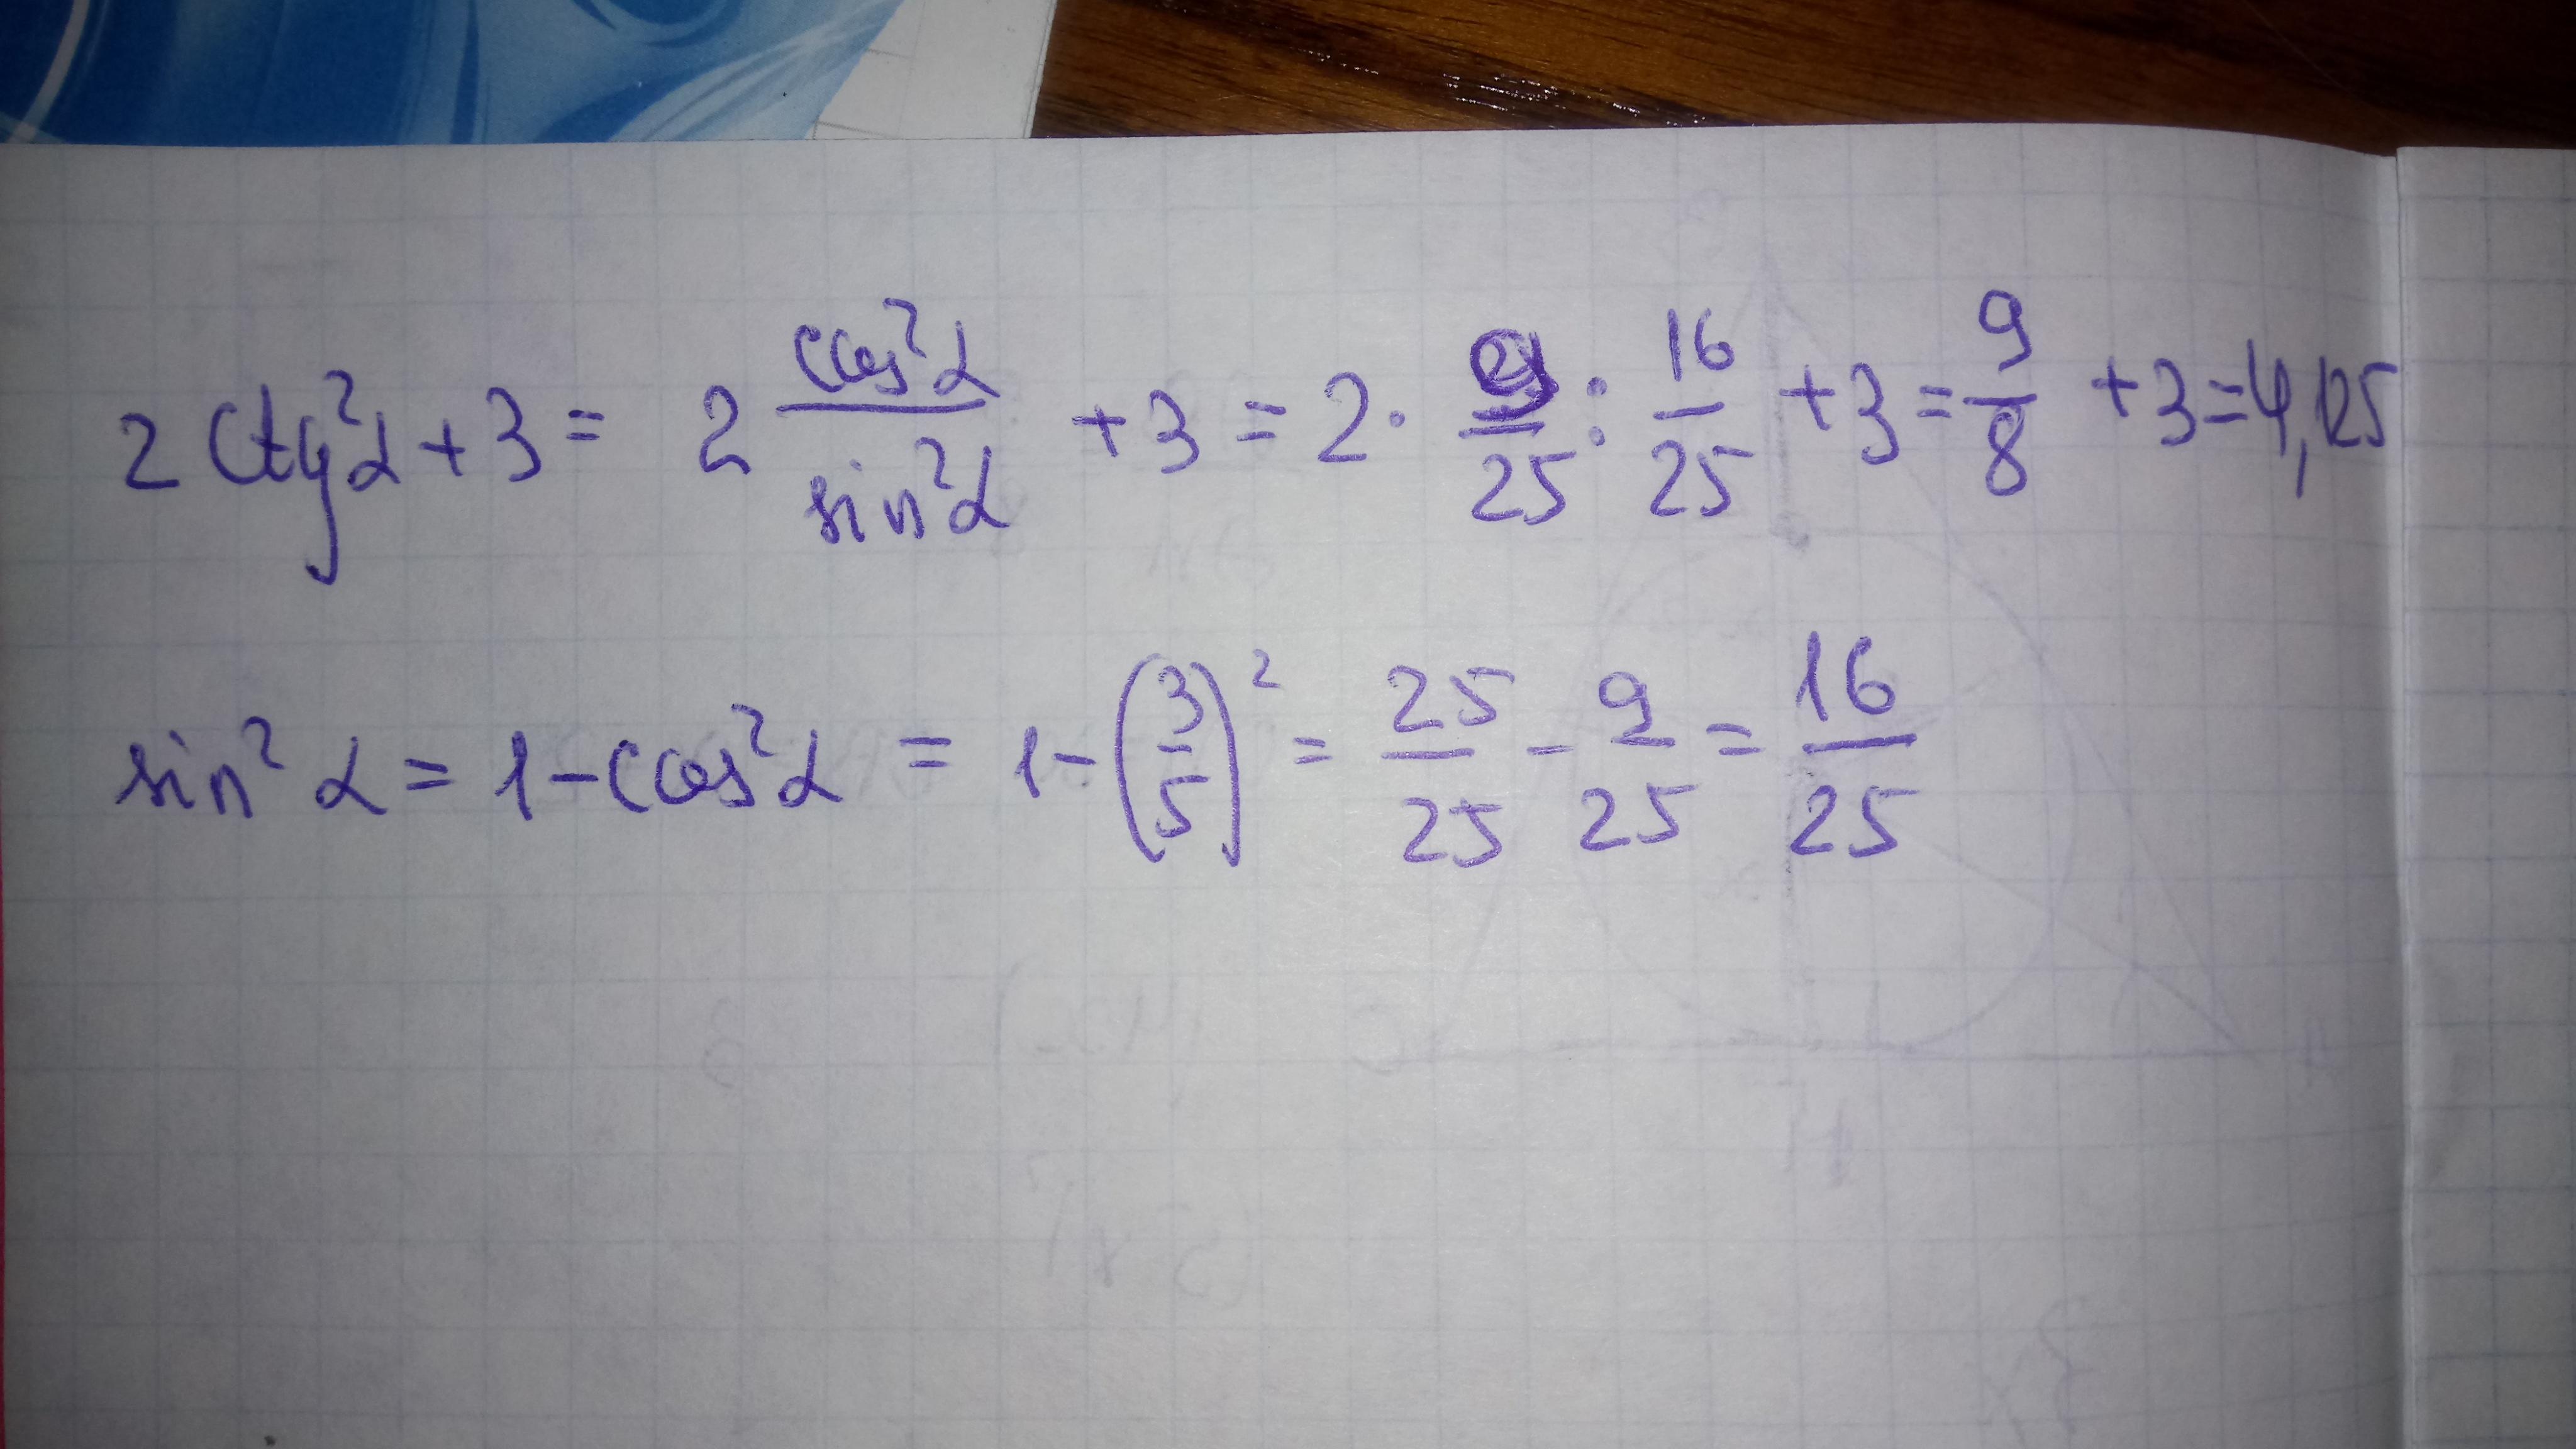 2 ctg²α + 3 = 2 cos²α/sin²α + 3 = 2 · 9/25 : 16/25 + 3 = 9/8 + 3 = 4,125
sin²α = 1 - cos²α = 1 - (3/5)² = 25/25 - 9/25 = 16/25